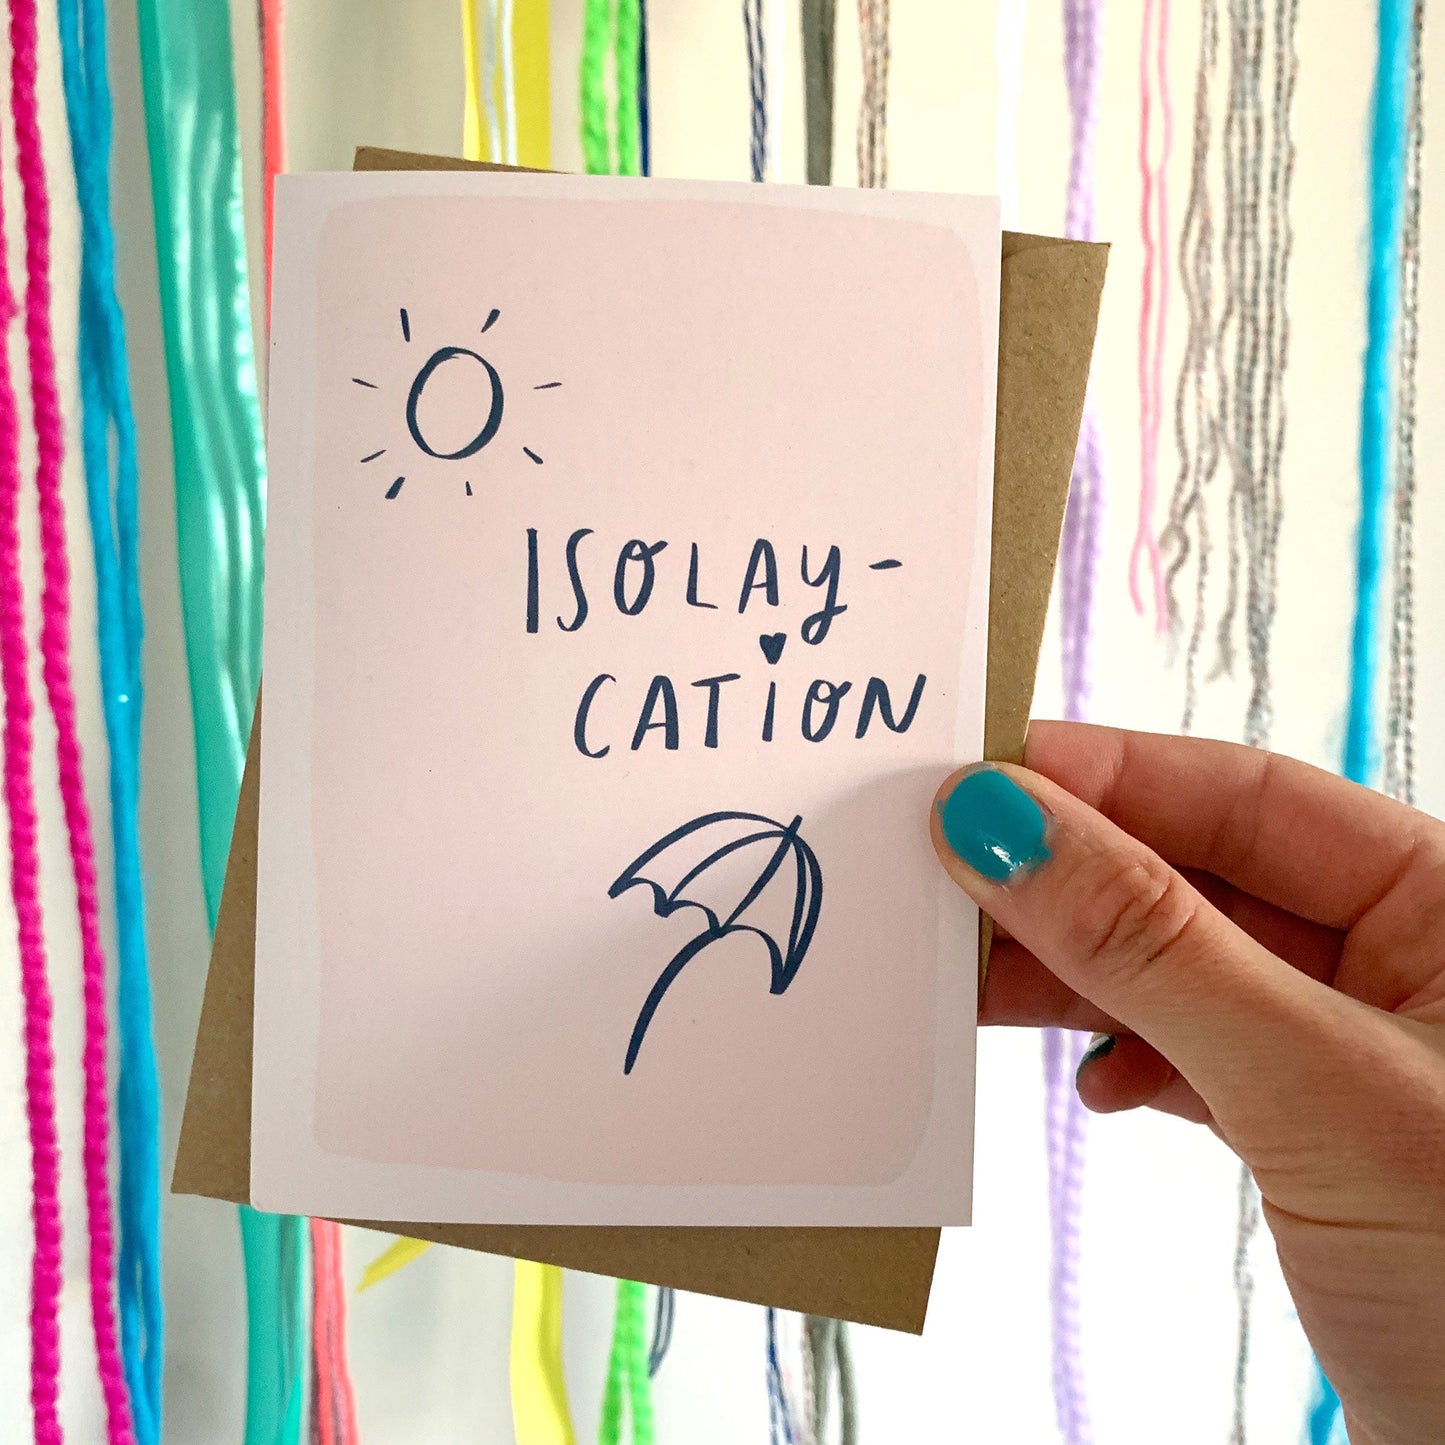 ISOLAY-
CATiON